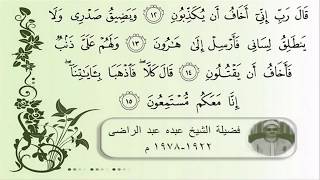 قَالَ رَبِّ إِنِّىٓ أَخَافُ أَن يُكَذِّبُونِ ١٢ وَيَضِيقُ صَدْرِى وَلَا
يَنطَلِقُ لِسَانِى فَأَرْسِلْ إِلَىٰ هَٰرُونَ ١٣ وَلَهُمْ عَلَىَّ ذَنۢبٌ
فَأَخَافُ أَن يَقْتُلُونِ ١٤ قَالَ كَلَّا ۖ فَٱذْهَبَا بِـَٔايَٰتِنَآ ۖ
إِنَّا مَعَكُم مُّسْتَمِعُونَ ١٥
فضيلة الشيخ عبده عبد الراضى
١٩٢٢-١٩٧٨ م